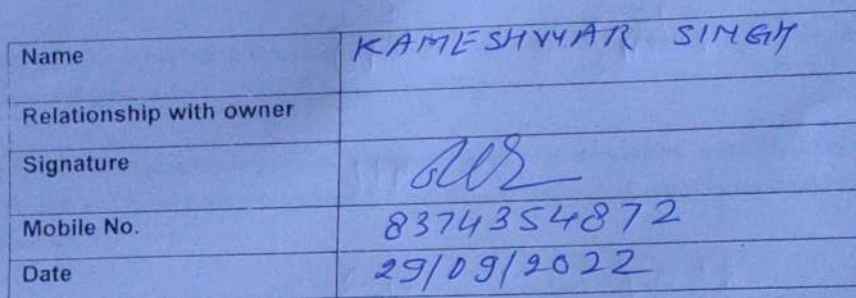 Name KAMESHWAR SINGH
Relationship with owner
Signature
Mobile No. 8374354872
Date 29/09/2022